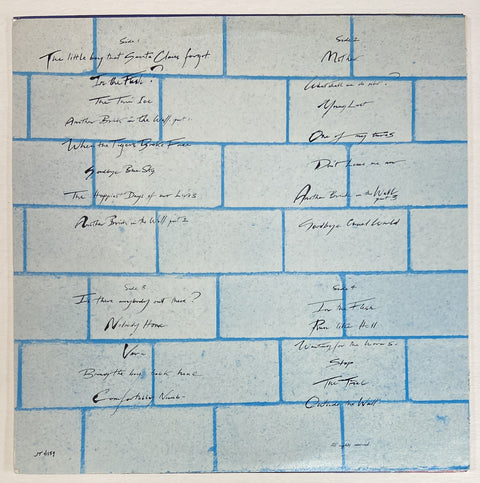 Side 1
The little boy that Santa Claus forgot
In the Flesh?
The Thin Ice
Another Brick in the Wall part 1
When the Tigers Broke Free
Goodbye Blue Sky
The Happiest Days of our Lives
Another Brick in the Wall part 2
Side 2
Mother
What shall we do now?
Young Lust
One of my turns
Don't leave me now
Another Brick in the Wall
part 3
Goodbye Cruel World
Side 3
Is there anybody out there?
Nobody Home
Vera
Bring the boys back home
Comfortably Numb
Side 4
In the Flesh
Run like Hell
Waiting for the Worms
Stop
The Trial
Outside the Wall
All rights reserved